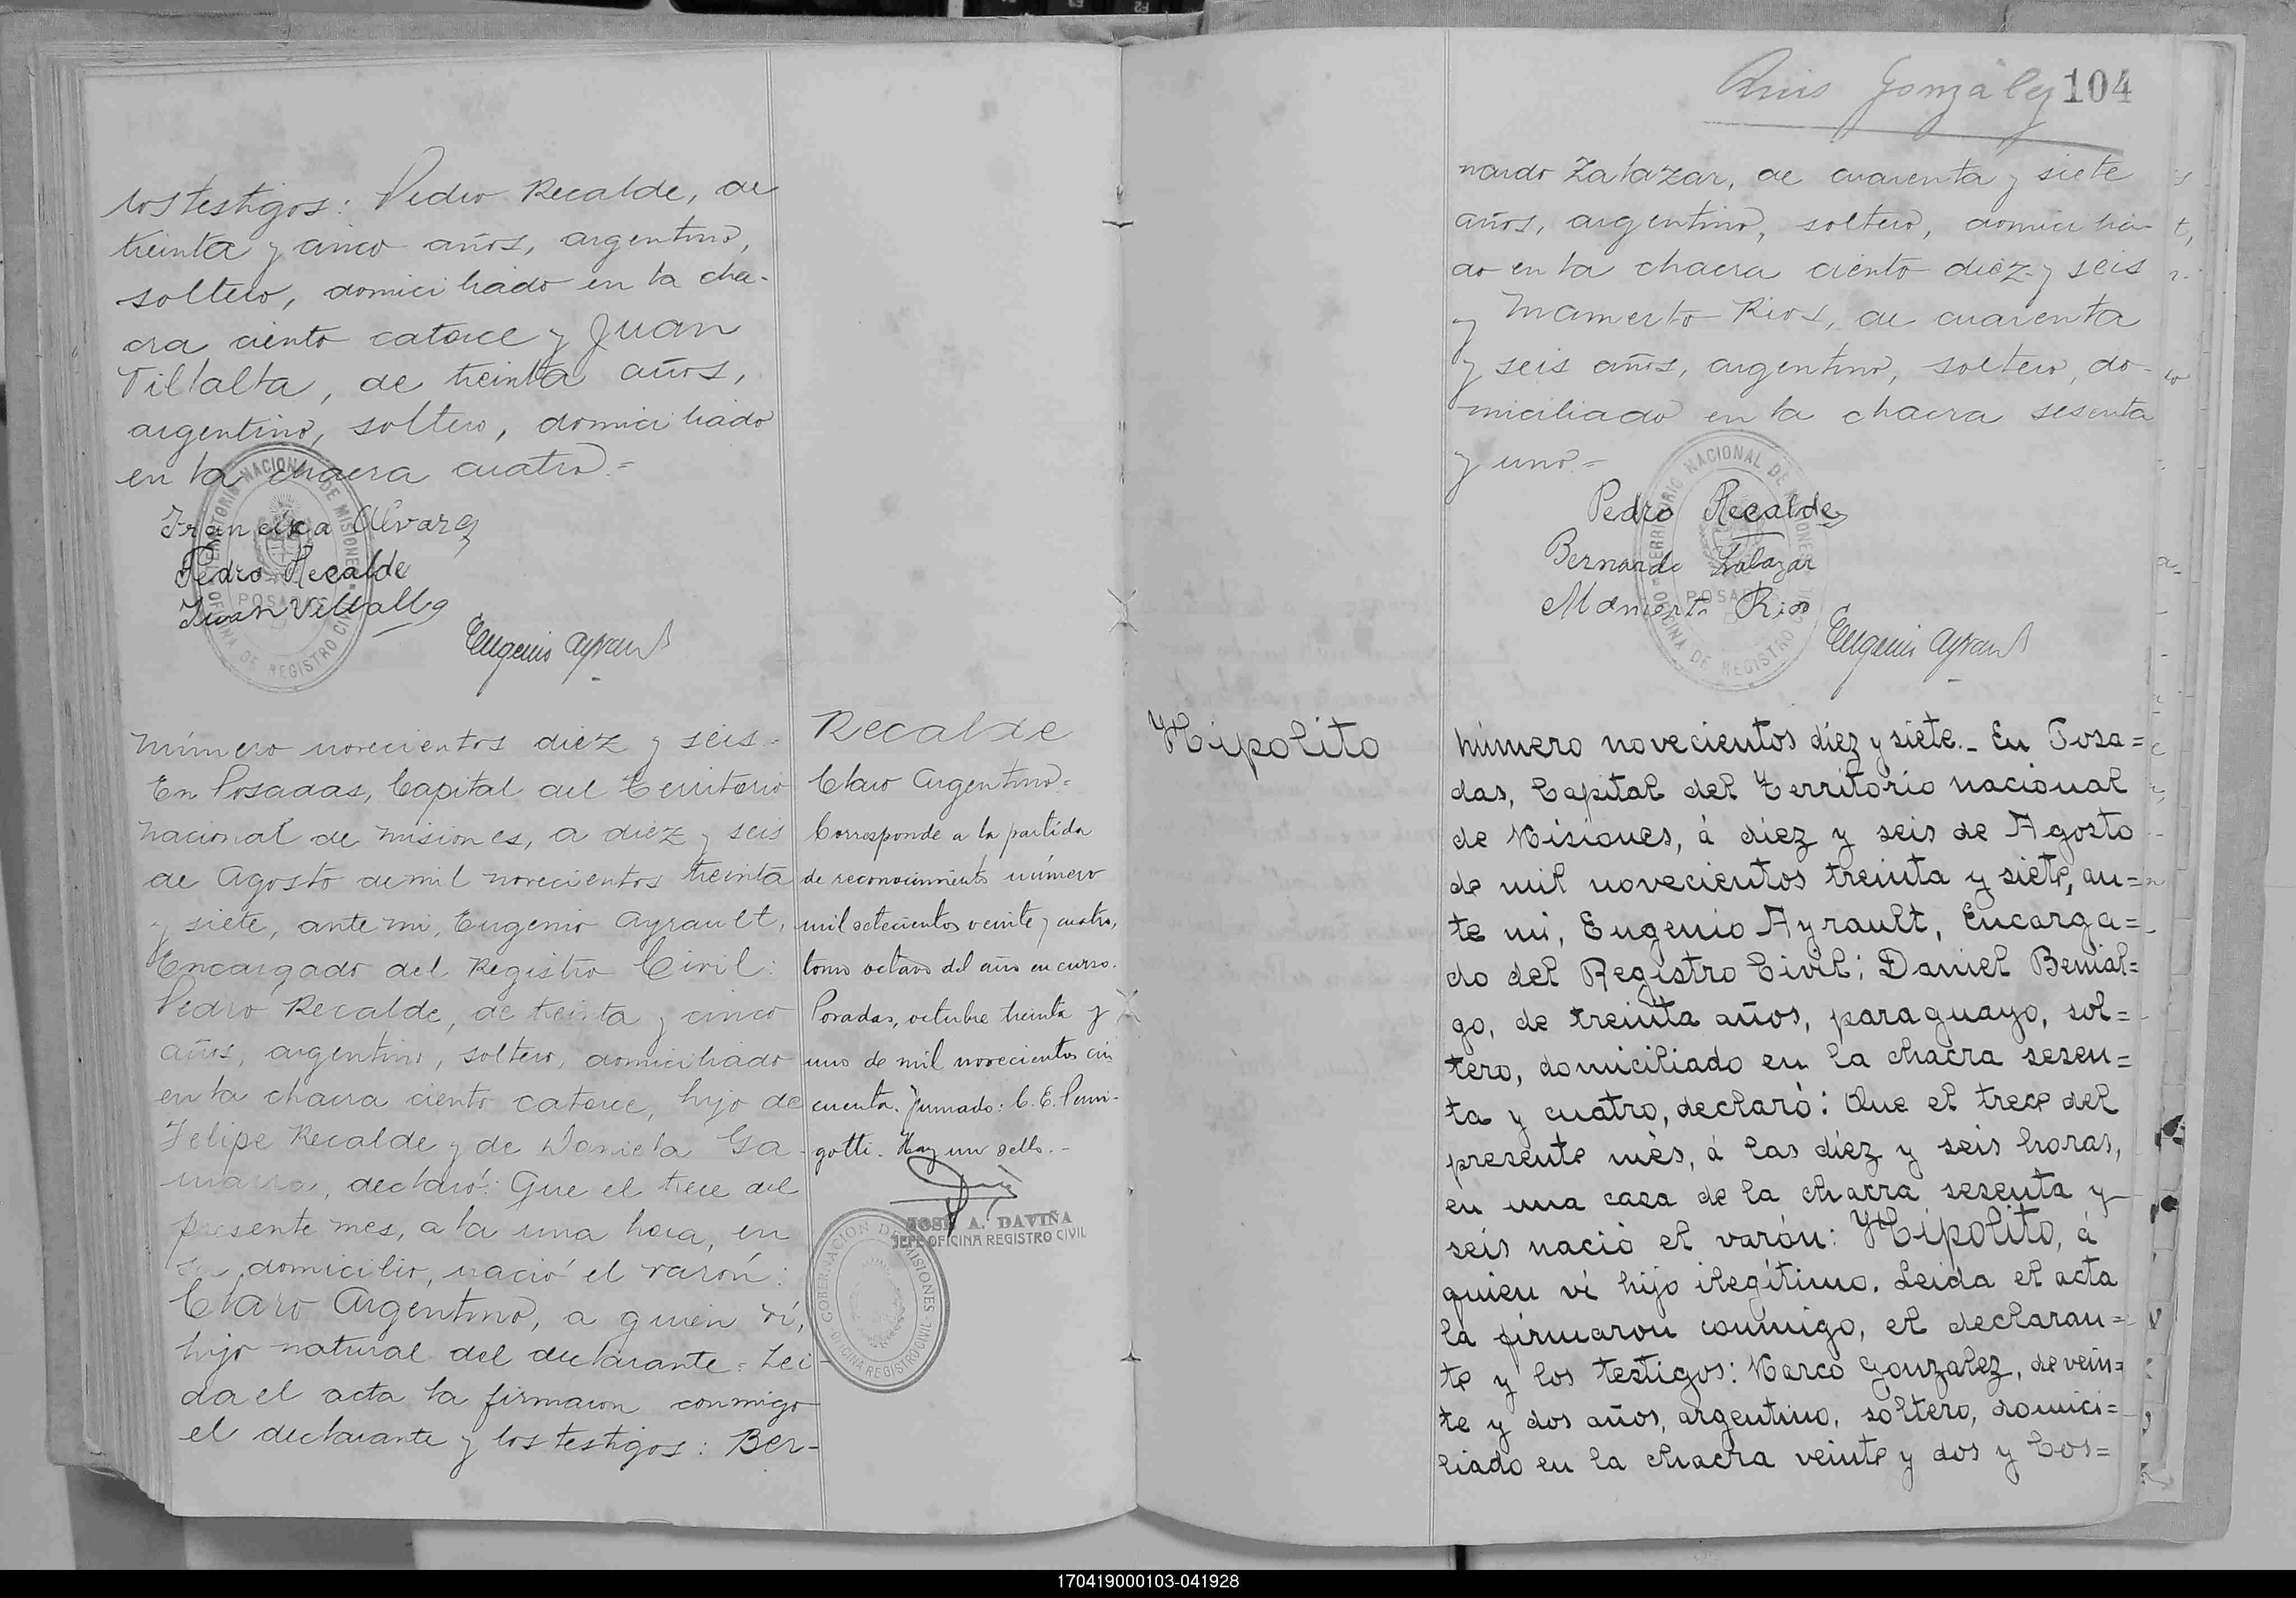 los testigos: Pedro Recalde, de
treinta y cinco años, argentino,
soltero, domiciliado en la cha-
cra ciento catorce y Juan
Villalta, de treinta años,
argentino, soltero, domiciliado
en la chacra cuatro.=
TERRITORIO NACIONAL DE MISIONES
POSADAS
OFICINA DE REGISTRO CIVIL
Francisca Alvarez
Pedro Recalde
Juan Villalba
Eugenio Ayrault
Número novecientos diez y seis.-
En Posadas, Capital del Territorio
nacional de Misiones, a diez y seis
de Agosto de mil novecientos treinta
y siete, ante mi, Eugenio Ayrault,
Encargado del Registro Civil:
Pedro Recalde, de treinta y cinco
años, argentino, soltero, domiciliado
en la chacra ciento catorce, hijo de
Felipe Recalde y de Daniela Ga-
marra, declaró: Que el trece del
presente mes, a la una hora, en
su domicilio, nació el varón:
Claro Argentino, a quien ví,
hijo natural del declarante = Lei-
da el acta la firmaron conmigo
el declarante y los testigos: Ber-
Recalde
Claro Argentino=
Corresponde a la partida
de reconocimiento número
mil setecientos veinte y cuatro,
tomo octavo del año en curso.
Posadas, octubre treinta y
uno de mil novecientos cin
cuenta. Firmado: C. E.
gotti. Hay un sello.-
JOSE A. DAVIÑA
JEFE OFICINA REGISTRO CIVIL
GOBERNACION DE MISIONES
OFICINA REGISTRO CIVIL
González 104
nardo Zalazar, de cuarenta y siete
años, argentino, soltero, domicilia-
do en la chacra ciento diez y seis
y Mamerto Rios, de cuarenta
y seis años, argentino, soltero, do-
miciliado en la chacra sesenta
y uno.=
TERRITORIO NACIONAL DE MISIONES
POSADAS
OFICINA DE REGISTRO CIVIL
Pedro Recalde
Bernardo Zalazar
Mamerto Rios
Eugenio Ayrault
Hipolito
Número novecientos diez y siete._ En Posa=
das, Capital del Territorio nacional
de Misiones, á diez y seis de Agosto
de mil novecientos treinta y siete, an=
te mi, Eugenio Ayrault, Encarga=
do del Registro Civil: Daniel Benial=
go, de treinta años, paraguayo, sol=
tero, domiciliado en la chacra sesen=
ta y cuatro, declaró: Que el trece del
presente mès, á las diez y seis horas,
en una casa de la chacra sesenta y
seis nació el varón: Hipolito, á
quien ví hijo ilegítimo. Leida el acta
la firmaron conmigo, el declaran=
te y los testigos: Marco Gonzalez, de vein=
te y dos años, argentino, soltero, domici=
liado en la chacra veinte y dos y Cos=
170419000103-041928